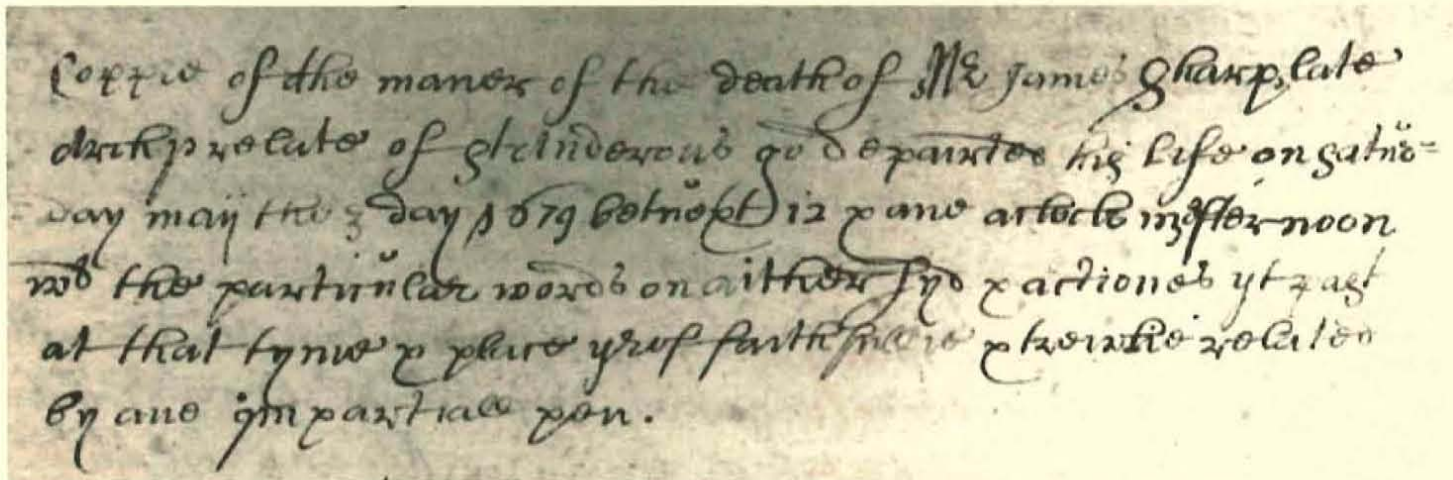 Coppie of the maner of the death of Mr James Sharp, late
Archprelate of St Anderous qo depairted this life on Satur=
=day maij the 3 day 1679 betuixt 12 & ane aclock in afternoon
wt the particular words on aither syd & actiones yt past
at that tyme & place yrof faithfullie & trewlie related
by ane impartiall pen.